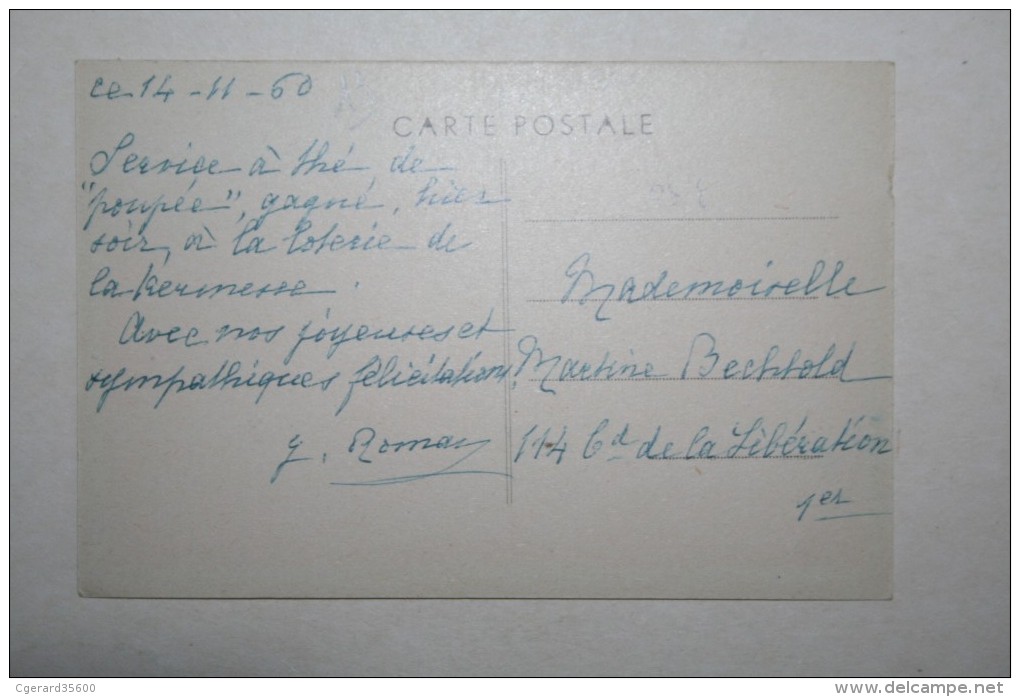 ce 14 - 11 - 60
CARTE POSTALE
Service à thé de
"poupée", gagné, hier
soir, à la loterie de
la kermesse.
Avec nos joyeuses et
sympathiques félicitations.
Mademoiselle
Martine Bechtold
114 Bd de la Libération
1er
Cgerard35600
www.delcampe.net